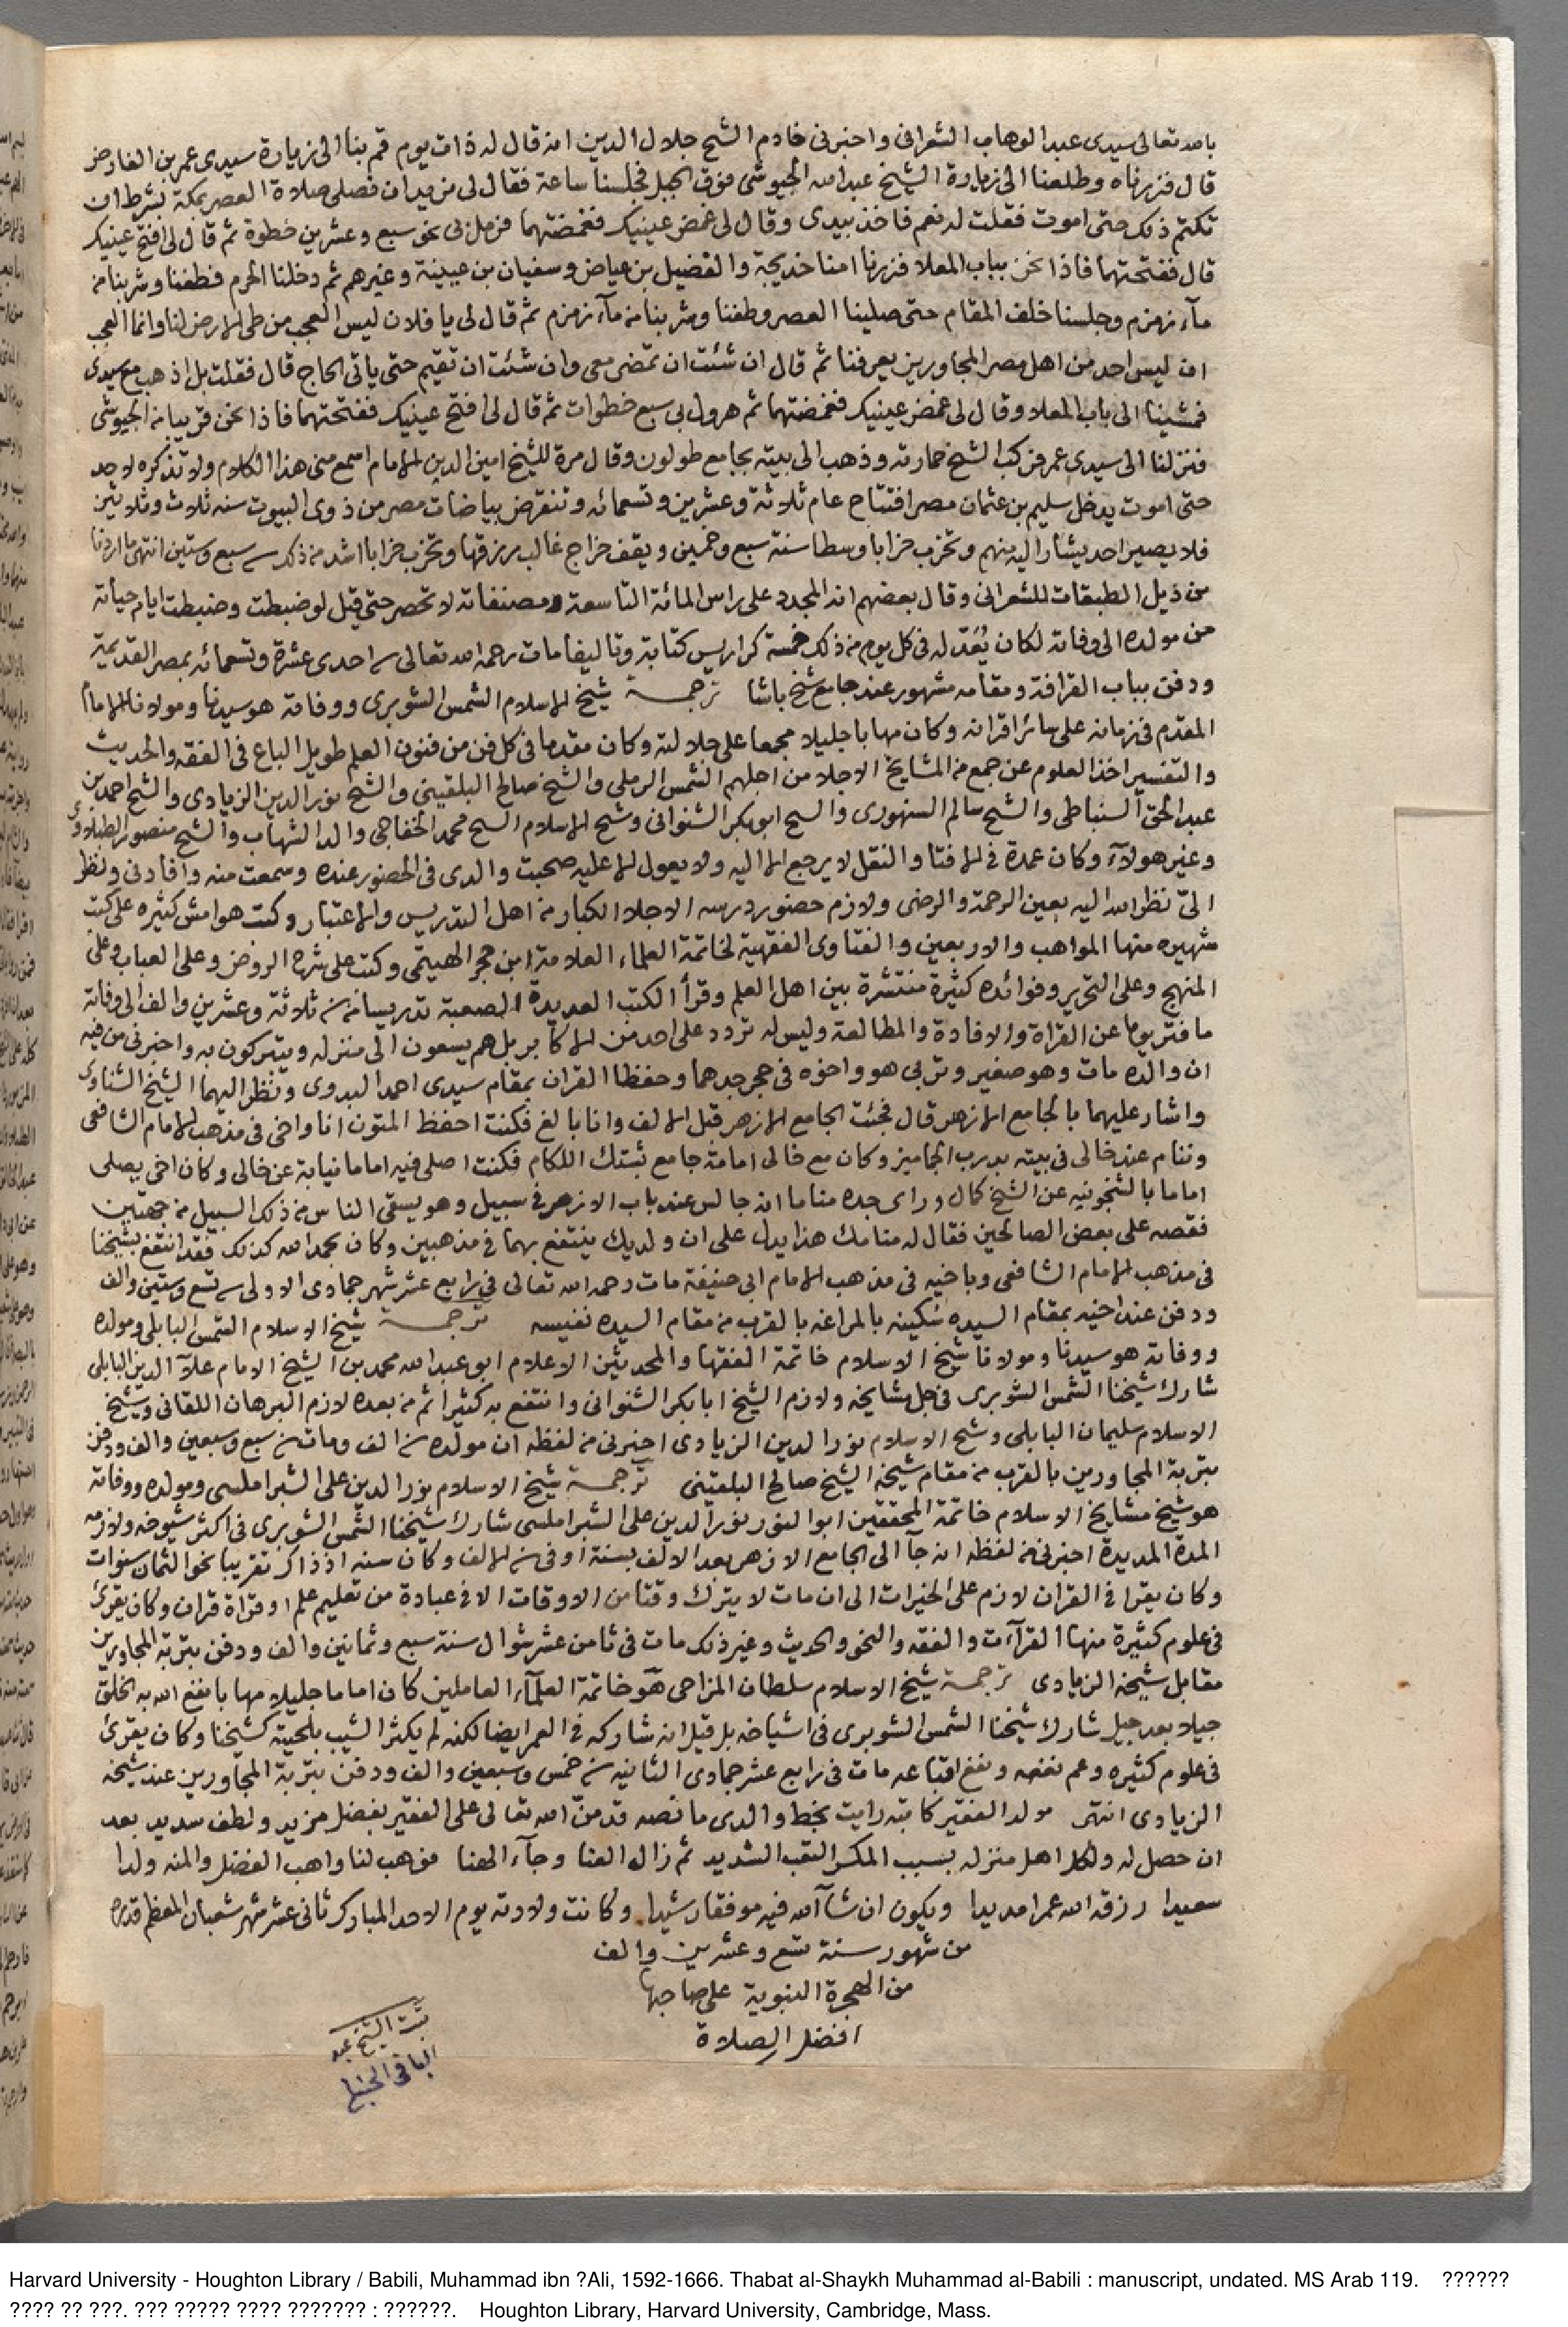 بالله تعالى سيدى عبد الوهاب الشعرانى واخبرنى خادم الشيخ جلال الدين انه قال له ذات يوم قم بنا الى زيارة سيدى عمر بن الفارض
قال فزرناه وطلعنا الى زيارة الشيخ عبد الله الجيوشى فوق الجبل فجلسنا ساعة فقال لى من يدان نصلى صلاة العصر بمكة بشرط ان
تكتم ذلك حتى اموت فقلت له نعم فاخذ بيدى وقال لى غمض عينيك فغمضتهما فرمل بى نحو سبع وعشرين خطوة ثم قال لى افتح عينيك
قال ففتحتهما فاذا نحن بباب المعلا فزرنا امنا خديجة والفضيل بن عياض وسفيان بن عيينة وغيرهم ثم دخلنا الحرم فطفنا وشربنا من
مآء زمزم وجلسنا خلف المقام حتى صلينا العصر وطفنا وشربنا من مآء زمزم ثم قال لى يا فلان ليس العجب من طى الارض لنا وانما العجب
ان ليس احد من اهل مصر المجاورين يعرفنا ثم قال ان شئت ان تمضى معى وان شئت ان تقيم حتى ياتى الحاج قال فقلت بل اذهب مع سيدى
فمشينا الى باب المعلا وقال لى غمض عينيك فغمضتهما ثم هرول بى سبع خطوات ثم قال لى افتح عينيك ففتحتهما فاذا نحن قريبا من الجيوشى
فنزلنا الى سيدى عمر فركب الشيخ حمارته وذهب الى بيته بجامع طولون وقال مرة للشيخ امين الدين الامام اسمع منى هذا الكلام ولا تذكره لاحد
حتى اموت يدخل سليم بن عثمان مصر افتتاح عام ثلاثة وعشرين وتسعمائه وتنقرض بياضات مصر من ذوى البيوت سنه ثلاث وثلاثين
فلا يصير احد يشار اليه منهم وتخرب خرابا وسطا سنة سبع وخمسين ويقف خراج غالب رزقها وتخرب خرابا اشد من ذلك سنه سبع وستين انتهى ما اردنا
من ذيل الطبقات للشعرانى وقال بعضهم انه المجدد على راس المائة التاسعة ومصنفاته لا تحصر حتى قيل لو ضبطت وضبطت ايام حياته
من مولده الى وفاته لكان يُعَدّ له فى كل يوم من ذلك خمسة كراريس كتابة وتاليفا مات رحمه الله تعالى سنه احدى عشرة وتسعمائه بمصر القديمة
ودفن بباب القرافة ومقامه مشهور عند جامع شيخ باشا ترجمـــة شيخ الاسلام الشمس الشوبرى ووفاته هو سيدنا ومولانا الامام
المقدم فى زمانه على سائر اقرانه وكان مهابا جليلا مجمعا على جلالته وكان مقدما فى كل فن من فنون العلم طويل الباع فى الفقه والحديث
والتفسير اخذ العلوم عن جمع من المشايخ الاجلا من اجلهم الشمس الرملى والشيخ صالح البلقينى والشيخ نور الدين الزيادى والشيخ احمد بن
عبد الحق السنباطى والشيخ سالم السنهورى والشيخ ابو بكر الشنوانى وشيخ الاسلام الشيخ محمد الخفاجى والد الشهاب والشيخ منصور الطبلاوى
وغير هولآء وكان عمدة فى الافتا والنقل لا يرجع الا اليه ولا يعول الا عليه صحبت والدى فى الحضور عنده وسمعت منه وافادنى ونظر
الىّ نظر الله اليه بعين الرحمة والرضى ولازم حضور درسه الاجلا الكبار من اهل التدريس والاعتبار وكتب هوامش كثيره على كتب
شهيره منها المواهب والاربعين والفتاوى الفقهية لخاتمة العلماء العلامة ابن حجر الهيتمى وكتب على شرح الروض وعلى العباب وعلى
المنهج وعلى التحرير وفوائده كثيرة منتشرة بين اهل العلم وقرأ الكتب العديدة الصعبة تدريسا من سنه ثلاثة وعشرين والف الى وفاته
ما فتر يوما عن القراة والافادة والمطالعة وليس له تردد على احد من الاكابر بل هم يسعون الى منزله ويتبركون به واخبرنى من فيه
ان والده مات وهو صغير وتربى هو واخوه فى حجر جدهما وحفظا القران بمقام سيدى احمد البدوى ونظر اليهما الشيخ الشناوى
واشار عليهما بالجامع الازهر قال فجئت الجامع الازهر قبل الالف وانا بالغ فكنت احفظ المتون انا واخى فى مذهب الامام الشافعى
وننام عند خالى فى بيته بدرب الجاميز وكان مع خالى امامة جامع بشتك اللكام فكنت اصلى فيه اماما نيابة عن خالى وكان اخى يصلى
اماما بالشيخونيه عن الشيخ كال وراى جده مناما انه جالس عند باب الازهر فى سبيل وهو يسقى الناس من ذلك السبيل من جهتين
فقصه على بعض الصالحين فقال له منامك هذا يدل على ان ولديك ينتفع بهما فى مذهبين وكان بحمد الله كذلك فقد انتفع بشيخنا
فى مذهب الامام الشافعى وباخيه فى مذهب الامام ابى حنيفة مات رحمه الله تعالى فى رابع عشر شهر جمادى الاولى سنه تسع وستين والف
ودفن عند اخيه بمقام السيده سكينه بالمراغه بالقرب من مقام السيده نفيسه ترجمـــة شيخ الاسلام الشمس البابلى ومولده
ووفاته هو سيدنا ومولانا شيخ الاسلام خاتمة الفقها والمحدثين الاعلام ابو عبد الله محمد بن الشيخ الامام علآء الدين البابلى
شارك شيخنا الشمس الشوبرى فى جل مشايخه ولازم الشيخ ابا بكر الشنوانى وانتفع به كثيرا ثم من بعده لازم البرهان اللقانى وشيخ
الاسلام سليمان البابلى وشيخ الاسلام نور الدين الزيادى اخبرنى من لفظه ان مولده سنه الف ومات سنه سبع وسبعين والف ودفن
بتربة المجاورين بالقرب من مقام شيخه الشيخ صالح البلقينى ترجمـــة شيخ الاسلام نور الدين على الشبراملسى ومولده ووفاته
هو شيخ مشايخ الاسلام خاتمة المحققين ابو النور نور الدين على الشبراملسى شارك شيخنا الشمس الشوبرى فى اكثر شيوخه ولازمه
المدة المديدة اخبرنى من لفظه انه جآ الى الجامع الازهر بعد الالف بسنة او فى سنه الالف وكان سنه اذ ذاك تقريبا نحو الثمان سنوات
وكان يقرا فى القران لازم على الخيرات الى ان مات لا يترك وقتا من الاوقات الا فى عبادة من تعليم علم او قراة قران وكان يقرئ
فى علوم كثيرة منها القراآت والفقه والنحو والحديث وغير ذلك مات فى ثامن عشر شوال سنة سبع وثمانين والف ودفن بتربة المجاورين
مقابل شيخه الزيادى ترجمـــة شيخ الاسلام سلطان المزاحى هو خاتمة العلمآء العاملين كان اماما جليلا مهابا نفع الله به الخلق
جيلا بعد جيل شارك شيخنا الشمس الشوبرى فى اشياخه بل قيل انه شاركه فى العمر ايضا لكنه لم يكثر الشيب بلحيته كشيخنا وكان يقرئ
فى علوم كثيره وعم نفعه ونفع اتباعه مات فى رابع عشر جمادى الثانيه سنه خمس وسبعين والف ودفن بتربة المجاورين عند شيخه
الزيادى انتهى مولد الفقير كاتبه رايت بخط والدى ما نصه قد منّ الله تعالى على الفقير بفضل مزيد ولطف سديد بعد
ان حصل له ولكل اهل منزله بسبب المكس التعب الشديد ثم زال العنا وجآء الهنا فوهب لنا واهب الفضل والمنه ولدا
سعيدا رزقه الله عمرا مديدا ويكون ان شآ الله فيه موفقا رشيدا وكانت ولادته يوم الاحد المبارك ثانى عشر شهر شعبان المعظم قدره
من شهور سنة تسع وعشرين والف
من الهجرة النبوية على صاحبها
افضل الصلاة
ثبت الشيخ عبد
الباقى الحنبلى
Harvard University - Houghton Library / Babili, Muhammad ibn ?Ali, 1592-1666. Thabat al-Shaykh Muhammad al-Babili : manuscript, undated. MS Arab 119. ??????
???? ?? ???. ??? ????? ???? ??????? : ??????. Houghton Library, Harvard University, Cambridge, Mass.